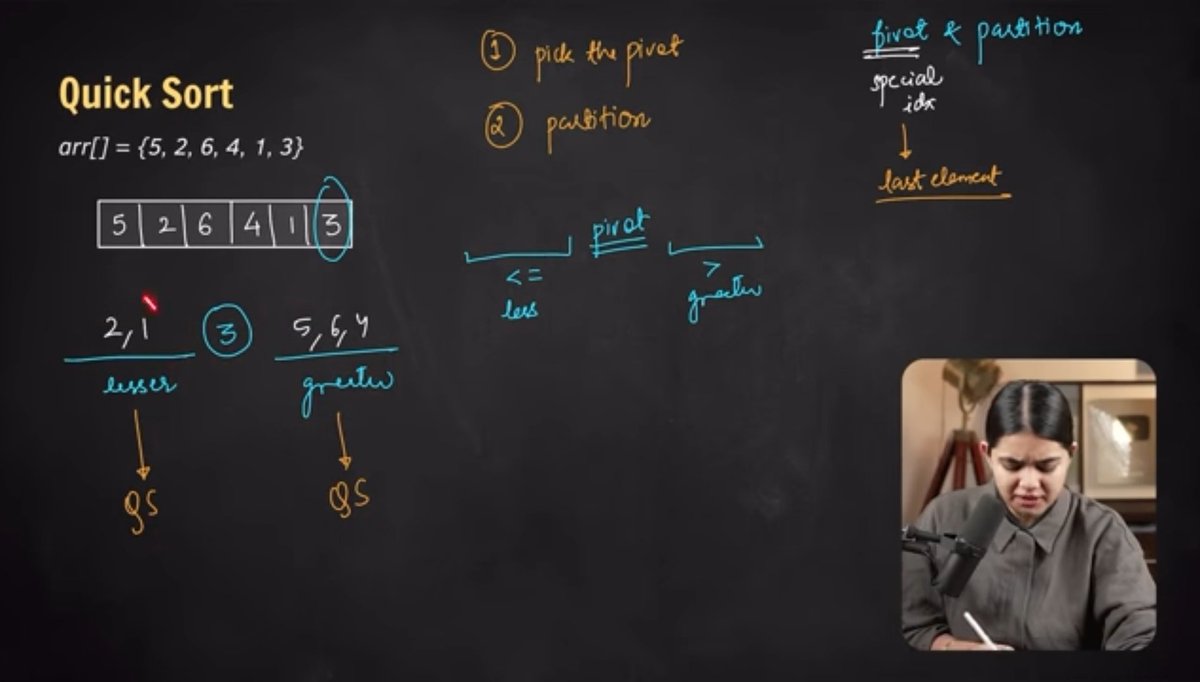 Quick Sort
arr[] = {5, 2, 6, 4, 1, 3}
5 2 6 4 1 3
2, 1 3 5, 6, 4
lesser greater
QS QS
1 pick the pivot
2 partition
pivot
<= >
less greater
pivot & partition
special
idx
last element